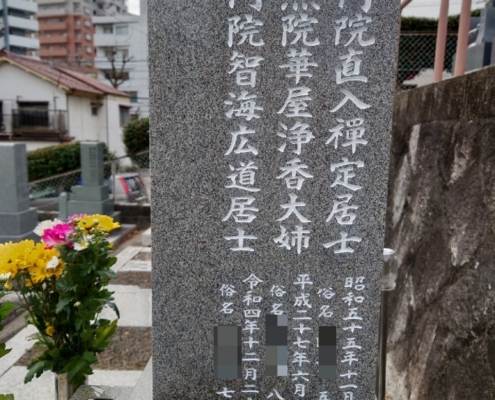 院直入禪定居士
昭和五十五年十一月
俗名
院華屋浄香大姉
平成二十七年六月
俗名 八
院智海広道居士
令和四年十二月二
俗名 七